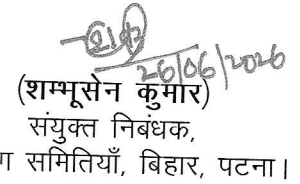 26/06/2026
(शम्भूसेन कुमार)
संयुक्त निबंधक,
ग समितियाँ, बिहार, पटना।